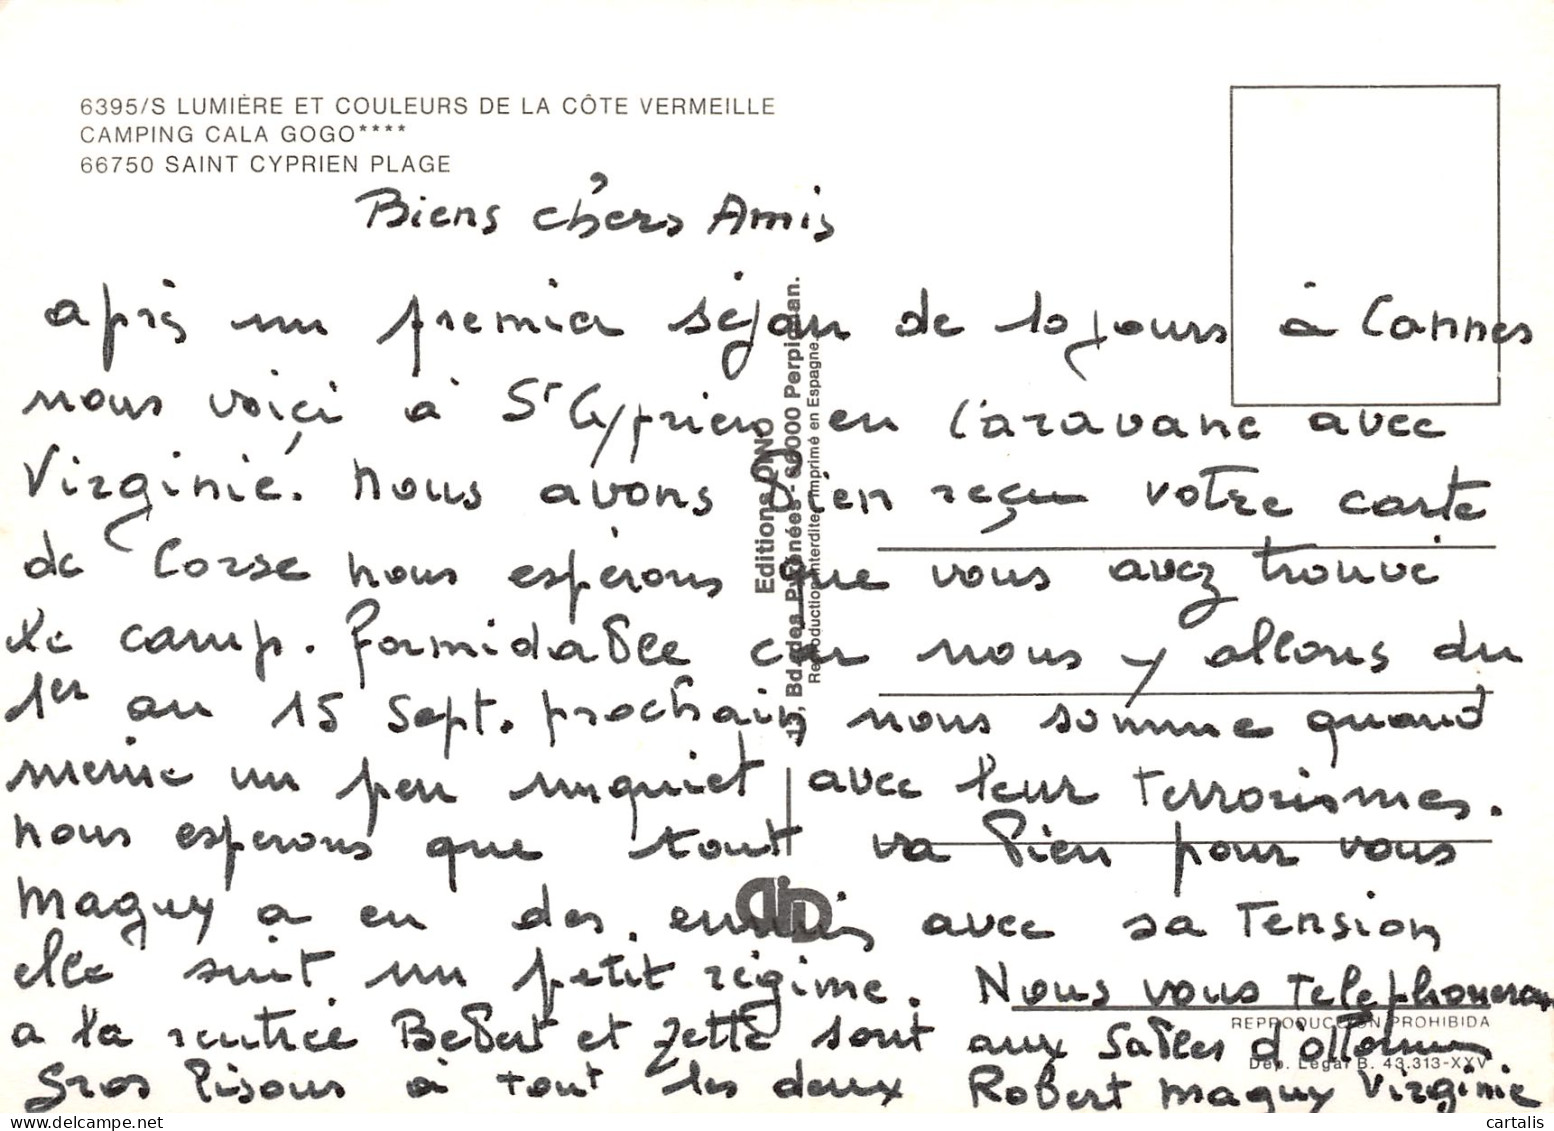 6395/S LUMIÈRE ET COULEURS DE LA CÔTE VERMEILLE
CAMPING CALA GOGO****
66750 SAINT CYPRIEN PLAGE
Biens chers Amis
après un premier séjour de 10 jours à Cannes
nous voici à St Cyprien en Caravane avec
Virginie. Nous avons bien reçu votre carte
de Corse nous espérons que vous avez trouvé
le camp. formidable car nous y allons du
1er au 15 Sept. prochain nous somme quand
meme un peu inquiet avec leur terrorismes.
nous esperons que tout va bien pour vous
Maguy a eu des ennuis avec sa Tension
elle suit un petit régime. Nous vous telephoneron
a la rentrée Bebert et Zette sont aux Sables d'ollonnes
Gros Bisous à tout les deux Robert Maguy Virginie
Editions DINO
11, Bd. des Pyrénées - 66000 Perpignan.
Reproduction interdite. Imprimé en Espagne.
REPRODUCCION PROHIBIDA
Dep. Legal B. 43.313-XXV
cartalis